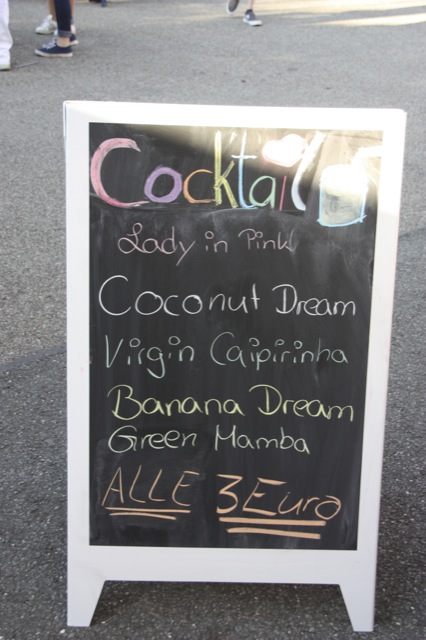 Cocktail
Lady in Pink
Coconut Dream
Virgin Caipirinha
Banana Dream
Green Mamba
ALLE 3 Euro